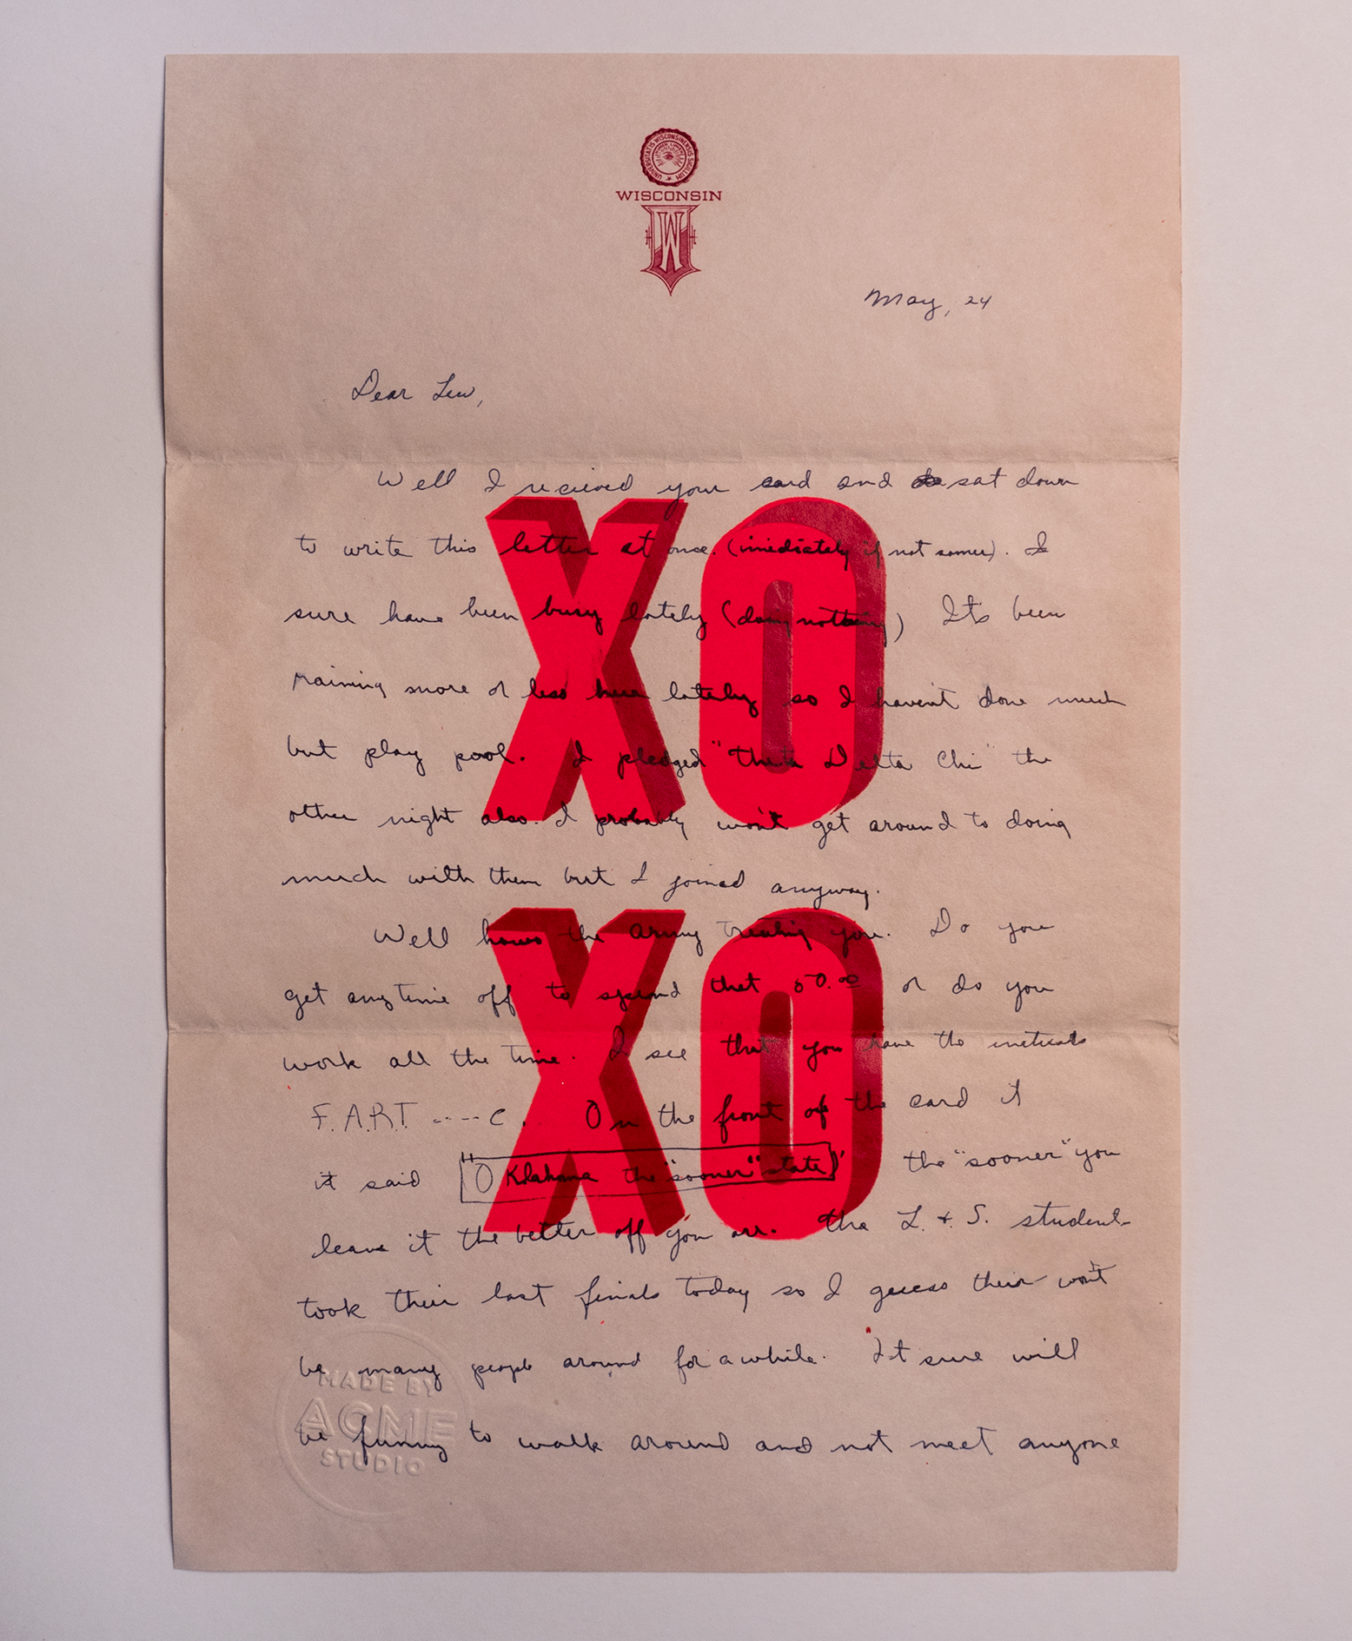 UNIVERSITATIS WISCONSINENSIS SIGILLUM
WISCONSIN
W
May, 24
Dear Lew,
Well I recieved your card and sat down
to write this letter at once. (imediately if not sooner). I
sure have been busy lately (doing nothing) Its been
raining more or less here lately so I haven't done much
but play pool. I pledged "Theta Delta Chi" the
other night also. I probably won't get around to doing
much with them but I joined anyway.
Well hows the army treating you. Do you
get anytime off to spend that 50.00 or do you
work all the time. I see that you have the initials
F.A.R.T. ----C. On the front of the card it
it said "Oklahoma the "sooner" state" the "sooner" you
leave it the better off you are. The L. + S. students
took their last finals today so I guess their won't
be many people around for awhile. It sure will
be funny to walk around and not meet anyone
XO
XO
MADE BY
ACME
STUDIO